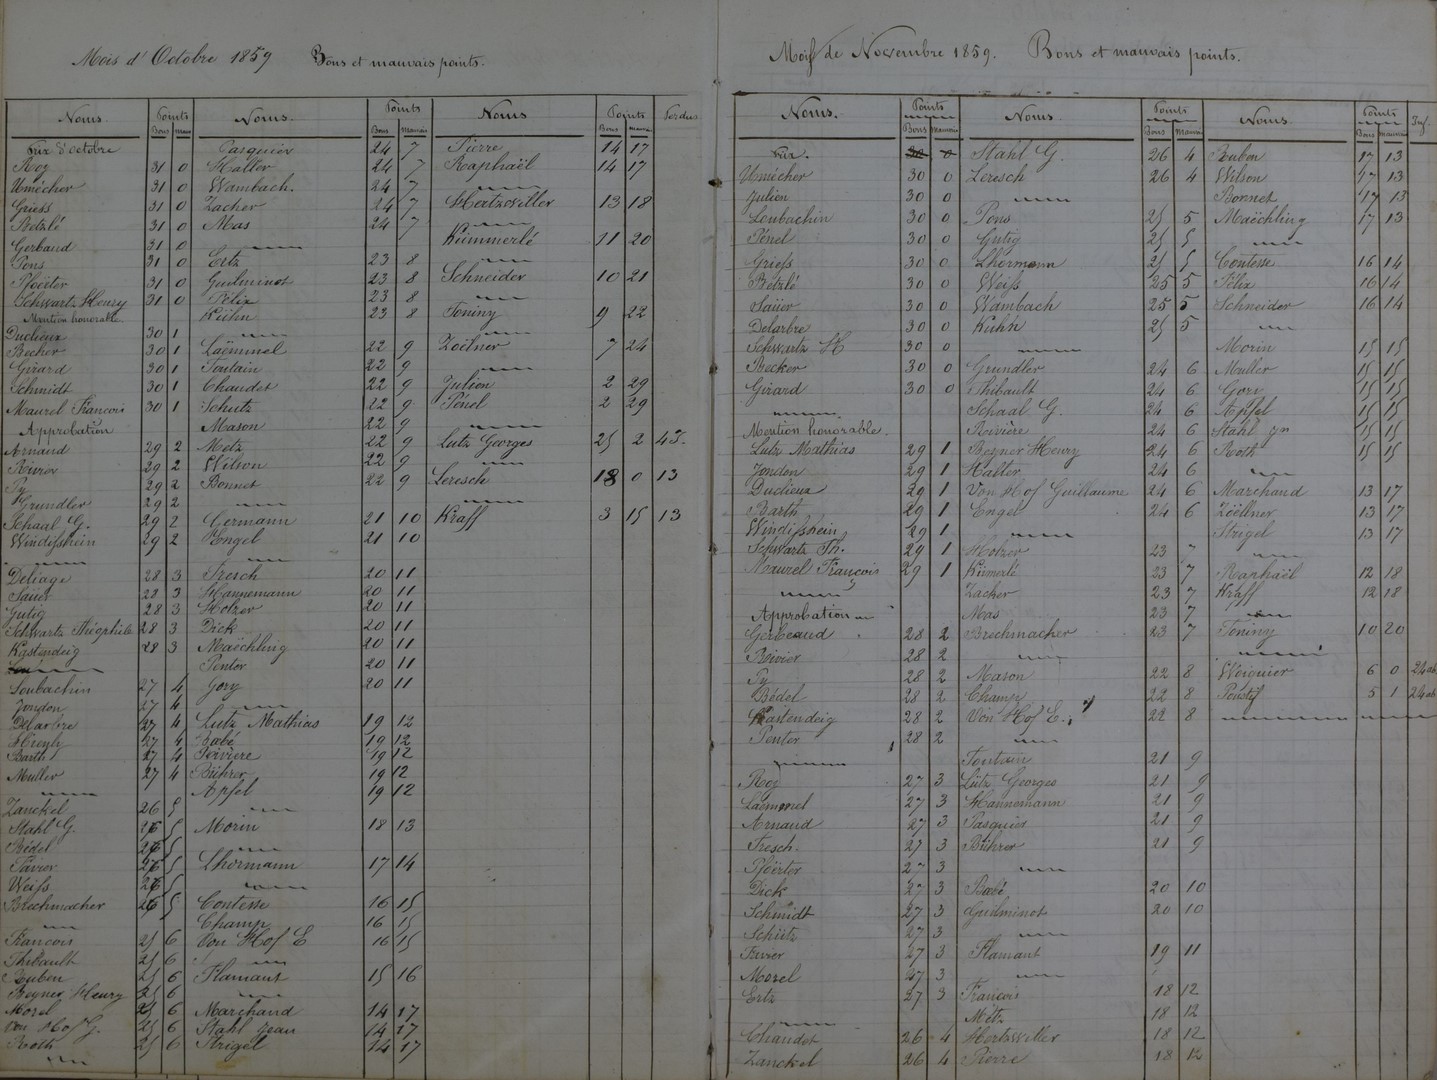 Mois d'Octobre 1859 Bons et mauvais points.
Noms. Points Bons Mauv
Prix d'octobre
Roy 31 0
Umécher 31 0
Griess 31 0
Betzlé 31 0
Gerbaud 31 0
Pons 31 0
Pfoërter 31 0
Schwartz Heury 31 0
Mention honorable
Duclieux 30 1
Becker 30 1
Girard 30 1
Schmidt 30 1
Maurel Francois 30 1
Approbation
Arnaud 29 2
Rivier 29 2
Py 29 2
Grundler 29 2
Schaal G. 29 2
Windisshein 29 2
Deliage 28 3
Saüer 28 3
Gutig 28 3
Schwartz Théophile 28 3
Kastendeig 28 3
Loubachin 27 4
Jondon 27 4
Delarbre 27 4
27 4
Barth 27 4
Muller 27 4
Zanckel 26 5
Stahl G. 26 5
Bédel 26 5
Favier 26 5
Weiss 26 5
Brechmacher 26 5
Francois 25 6
Thibault 25 6
Ruben 25 6
Beyner Heury 25 6
Morel 25 6
Von Hof G. 25 6
Roth 25 6
Noms. Points Bons Mauvais
Pasquier 24 7
Haller 24 7
Wambach. 24 7
Zacher 24 7
Mas 24 7
Ertz 23 8
Guilminot 23 8
Félix 23 8
Kuhn 23 8
Laëmmel 22 9
Toutain 22 9
Chaudet 22 9
Schutz 22 9
Mason 22 9
Metz 22 9
Wilson 22 9
Bonnet 22 9
Germann 21 10
Engel 21 10
Fresch 20 11
Hannemann 20 11
Holzer 20 11
Dick 20 11
Maëchling 20 11
Penter 20 11
Gory 20 11
Lutz Mathias 19 12
Babé 19 12
Rivière 19 12
Bührer 19 12
Apfel 19 12
Morin 18 13
Lhormann 17 14
Contesse 16 15
Champ 16 15
Von Hof E 16 15
Flamant 15 16
Marchand 14 17
Stahl Jean 14 17
Strigel 14 17
Noms Points Bons Mauv Perdus
Pierre 14 17
Raphaël 14 17
Hertzwiller 13 18
Kümmerlé 11 20
Schneider 10 21
Toniny 9 22
Zoëllner 7 24
Julien 2 29
Pénel 2 29
Lutz Georges 25 2 4 J.
Leresch 18 0 13
Kraff 3 15 13
Mois de Novembre 1859. Bons et mauvais points.
Noms. Points Bons Mauvais
Prix. 30 0
Umécher 30 0
Julien 30 0
Loubachin 30 0
Pénel 30 0
Griess 30 0
Betzlé 30 0
Saüer 30 0
Delarbre 30 0
Schwartz H 30 0
Becker 30 0
Girard 30 0
Mention honorable
Lutz Mathias 29 1
Jondon 29 1
Duclieux 29 1
Barth 29 1
Windisshein 29 1
Schwartz Th. 29 1
Maurel François 29 1
Approbation
Gerbeaud 28 2
Rivier 28 2
Py 28 2
Bédel 28 2
Kastendeig 28 2
Penter 28 2
Roy 27 3
Laëmmel 27 3
Arnaud 27 3
Fresch. 27 3
Pfoërter 27 3
Dick 27 3
Schmidt 27 3
Schütz 27 3
Favier 27 3
Morel 27 3
Ertz 27 3
Chaudet 26 4
Zanckel 26 4
Noms Points Bons Mauvais
Stahl G. 26 4
Leresch 26 4
Pons 25 5
Gutig 25 5
Lhormann 25 5
Weiss 25 5
Wambach 25 5
Kuhn 25 5
Grundler 24 6
Thibault 24 6
Schaal G. 24 6
Rivière 24 6
Beyner Heury 24 6
Haller 24 6
Von Hof Guillaume 24 6
Engel 24 6
Holzer 23 7
Kümerlé 23 7
Zacher 23 7
Mas 23 7
Brechmacher 23 7
Mason 22 8
Champ 22 8
Von Hof E. 22 8
Toutain 21 9
Lutz Georges 21 9
Hannemann 21 9
Pasquier 21 9
Bührer 21 9
Babé 20 10
Guilminot 20 10
Flamant 19 11
François 18 12
Métz 18 12
Hertzwiller 18 12
Pierre 18 12
Noms Points Bons Mauvais Inf.
Ruben 17 13
Wilson 17 13
Bonnet 17 13
Maëchling 17 13
Contesse 16 14
Félix 16 14
Schneider 16 14
Morin 15 15
Muller 15 15
Gori 15 15
Apfel 15 15
Stahl Jn 15 15
Roth 15 15
Marchand 13 17
Zoëllner 13 17
Strigel 13 17
Raphaël 12 18
Kraff 12 18
Toniny 10 20
Woignier 6 0 24 ab
5 1 24 ab